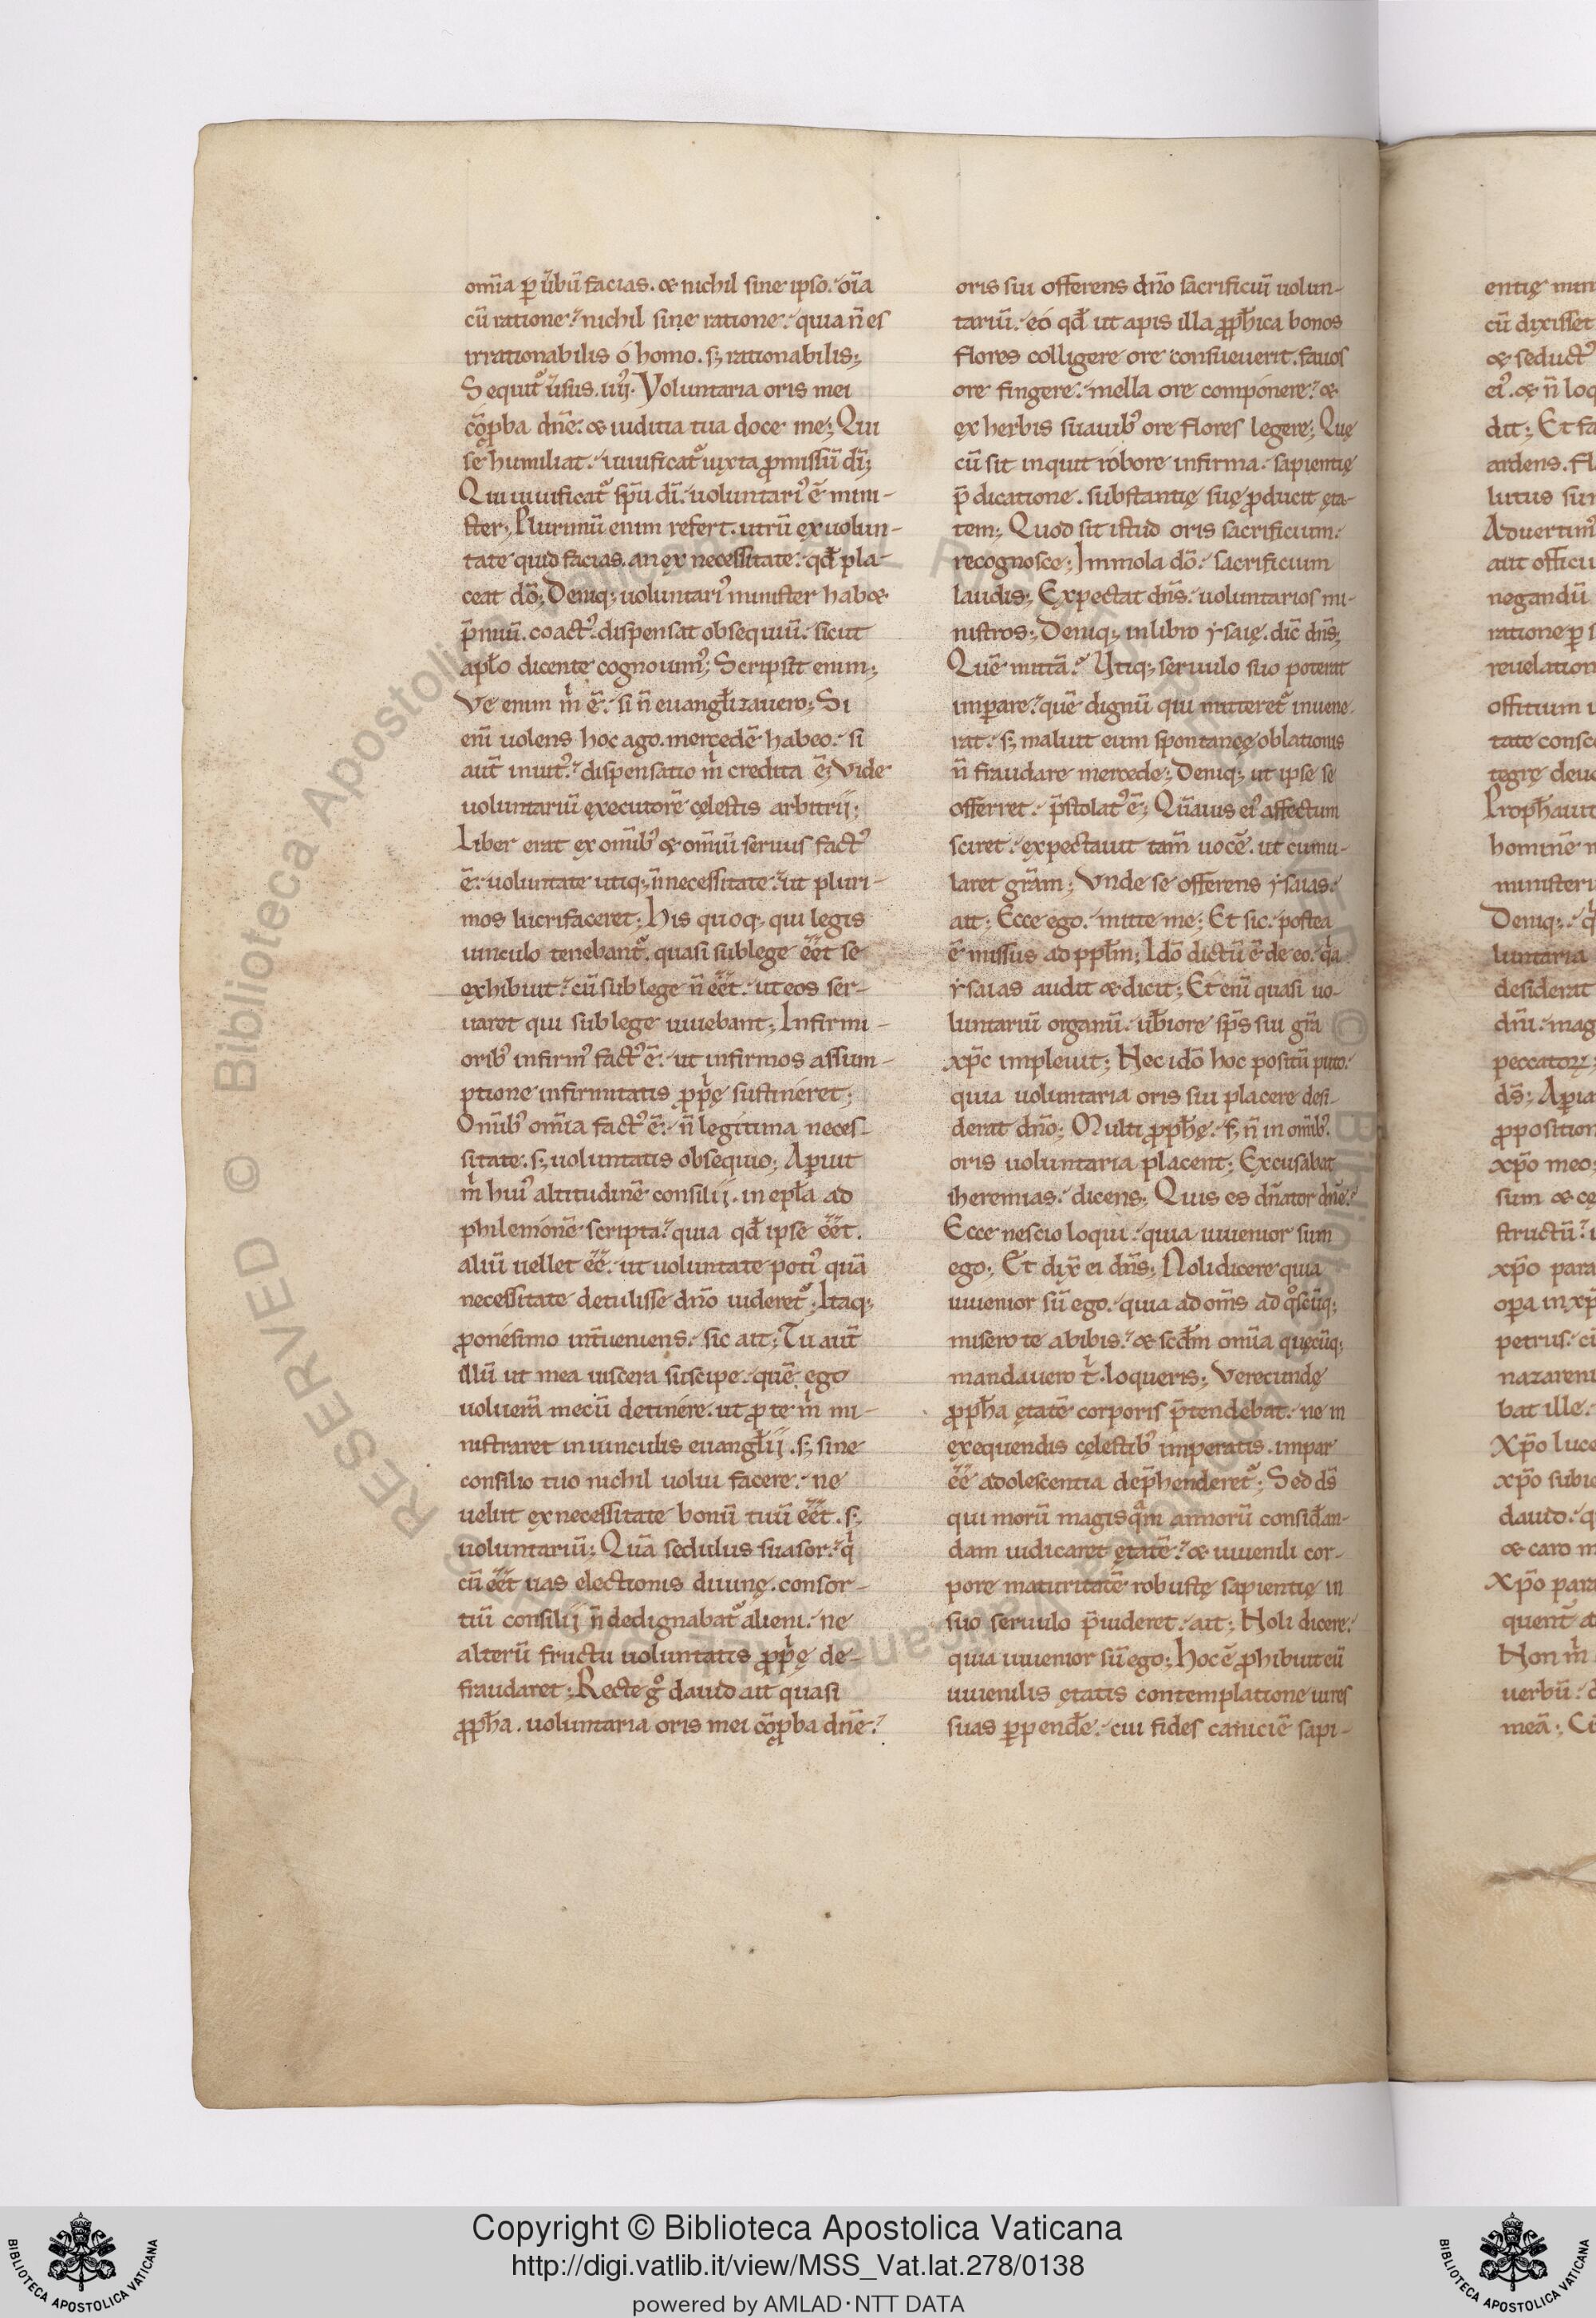 omīa ꝑ ūbū facias. & nichil sine ipso. oīa
cū ratione. nichil sine ratione. quia n̄ es
irrationabilis ó homo. sꝫ rationabilis;
Sequit᷑ ūsus. iiij. Voluntaria oris mei
cōꝓba dn̄e. & iuditia tua doce me; Qui
se humiliat. uiuificat᷑ iuxta ꝓmissū dī;
Qui uiuificat᷑ sp̄u dī. uoluntariꝰ ē mini-
ster; Plurimū enim refert. utrū ex uolun-
tate quid facias. an ex necessitate. qđ pla-
ceat dō; Deniqꝫ uoluntariꝰ minister hab&
p̄miū. coactꝰ dispensat obsequiū. sicut
apl̄o dicente cognouimꝰ; Scripsit enim;
Ve enim m̍ ē. si n̄ euangl̄izauero; Si
enī uolens hoc ago. mercedē habeo. si
aut̄ inuitꝰ. dispensatio m̍ credita ē; Vide
uoluntariū executorē cęlestis arbitrij;
Liber erat ex omībꝰ & omīū seruus factꝰ
ē. uoluntate utiqꝫ n̄ necessitate. ut pluri-
mos lucrifaceret; His quoqꝫ qui legis
uinculo tenebant᷑. quasi sub lege eēt se
exhibuit. cū sub lege n̄ eēt. ut eos ser-
uaret qui sub lege uiuebant; Infirmi-
oribꝰ infirmꝰ factꝰ ē. ut infirmos assum-
ptione infirmitatis ꝓp̍ę sustineret;
Omībꝰ omīa factꝰ ē. n̄ legitima neces-
sitate. sꝫ uoluntatis obsequio; Aperuit
m̍ huiꝰ altitudinē consilij. in epl̄a ad
philemonē scripta. quia qđ ipse eēt.
aliū uellet eē. ut uoluntate potiꝰ quā
necessitate detulisse dn̄o uideret᷑; Itaqꝫ
ꝓ onesimo int̄ueniens. sic ait; Tu aut̄
illū ut mea uiscera suscipe. quē ego
uoluerā mecū detinere. ut ꝓ te m̍ mi-
nistraret in uinculis euangl̄ij. sꝫ sine
consilio tuo nichil uolui facere. ne
uelut ex necessitate bonū tuū eēt. sꝫ
uoluntariū; Quā sedulus suasor. q̍
cū eēt uas electionis diuinę. consor-
tiū consilij n̄ dedignabat᷑ alieni. ne
alterū fructu uoluntatis ꝓp̍ę de-
fraudaret; Recte gͦ dauid ait quasi
ꝓph̄a. uoluntaria oris mei cōꝓba dn̄e.
oris sui offerens dn̄o sacrificiū uolun-
tariū. eo qđ ut apis illa ꝓph̄ica bonos
flores colligere ore consueuerit. fauos
ore fingere. mella ore componere. &
ex herbis suauibꝰ ore flores legere; Quę
cū sit inquit robore infirma. sapientię
p̄dicatione. substantię suę ꝓducit ęta-
tem; Quod sit istud oris sacrificium.
recognosce; Immola dō. sacrificium
laudis; Expectat dn̄s. uoluntarios mi-
nistros; Deniqꝫ in libro ysaię. dic̄ dn̄s;
Quē mittā. Utiqꝫ seruulo suo poterat
imperare. quē dignū qui mitteret᷑ inuene-
rat. sꝫ maluit eum spontaneę oblationis
n̄ fraudare mercede; Deniqꝫ ut ipse se
offerret. p̄stolatꝰ ē; Quāuis eiꝰ affectum
sciret. expectauit tam̄ uocē. ut cumu-
laret grām; Vnde se offerens ysaias.
ait; Ecce ego. mitte me; Et sic. postea
ē missus ad ppl̄m; Idō dictū ē de eo. qͣa
ysaias audit & dicit; Et enī quasi uo-
luntariū organū. ub̄iore sp̄s sui grā
xp̄c impleuit; Nec idō hoc positū puto.
quia uoluntaria oris sui placere desi-
derat dn̄o; Multi ꝓph̄ę. sꝫ n̄ in omībꝰ.
oris uoluntaria placent; Excusabat
iheremias. dicens; Quis es dn̄ator dn̄e.
Ecce nescio loqui. quia iuuenior sum
ego; Et dix̄ ei dn̄s; Noli dicere quia
iuuenior sū ego. quia ad om̄s ad qͦscūqꝫ
misero te abibis. & scđm omīa quęcūqꝫ
mandauero t̍. loqueris; Verecundę
ꝓph̄a ętatē corporis p̄tendebat. ne in
exequendis cęlestibꝰ imperatis. impar
eē adolescentia dep̄henderet᷑; Sed ds̄
qui morū magis qͣm annorū consid̄an-
dam iudicaret ętatē. & iuuenili cor-
pore maturitatē robustę sapientię in
suo seruulo p̄uideret. ait; Noli dicere.
quia iuuenior sū ego; Hoc ē ꝓhibuit eū
iuuenilis ętatis contemplatione uires
suas ꝑpend̄e. cui fides caniciē sapi-
RESERVED © Biblioteca Apostolica Vaticana
Copyright © Biblioteca Apostolica Vaticana
http://digi.vatlib.it/view/MSS_Vat.lat.278/0138
powered by AMLAD·NTT DATA
BIBLIOTECA APOSTOLICA VATICANA
BIBLIOTECA APOSTOLICA VATICANA